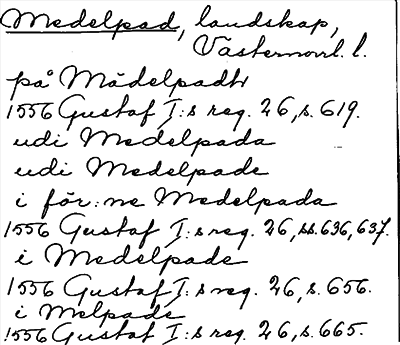 Medelpad, landskap,
Västernorrl. l.
på Mädelpadh
1556 Gustaf I:s reg. 26, s. 619.
udi Medelpada
udi Medelpade
i för:ne Medelpada
1556 Gustaf I:s reg. 26, ss. 636, 637.
i Medelpade
1556 Gustaf I:s reg. 26, s. 656.
i Melpade
1556 Gustaf I:s reg. 26, s. 665.